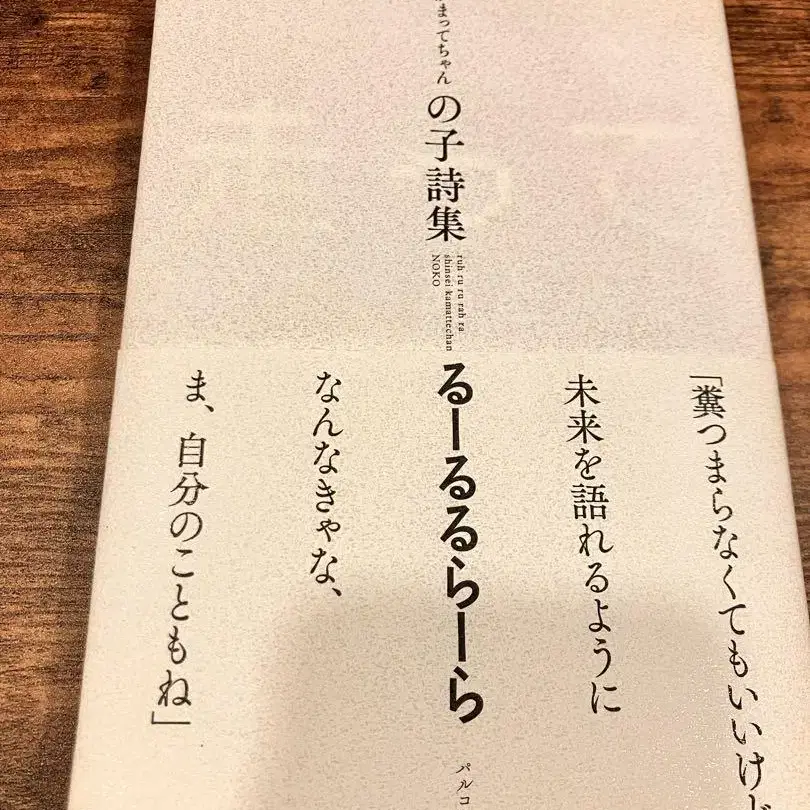 まってちゃん
の子詩集
ruh ru ru rah ra
shinsei kamattechan
NOKO
「糞つまらなくてもいいけど
未来を語れるように
るーるるらーら
なんなきゃな、
ま、自分のこともね」
パルコ